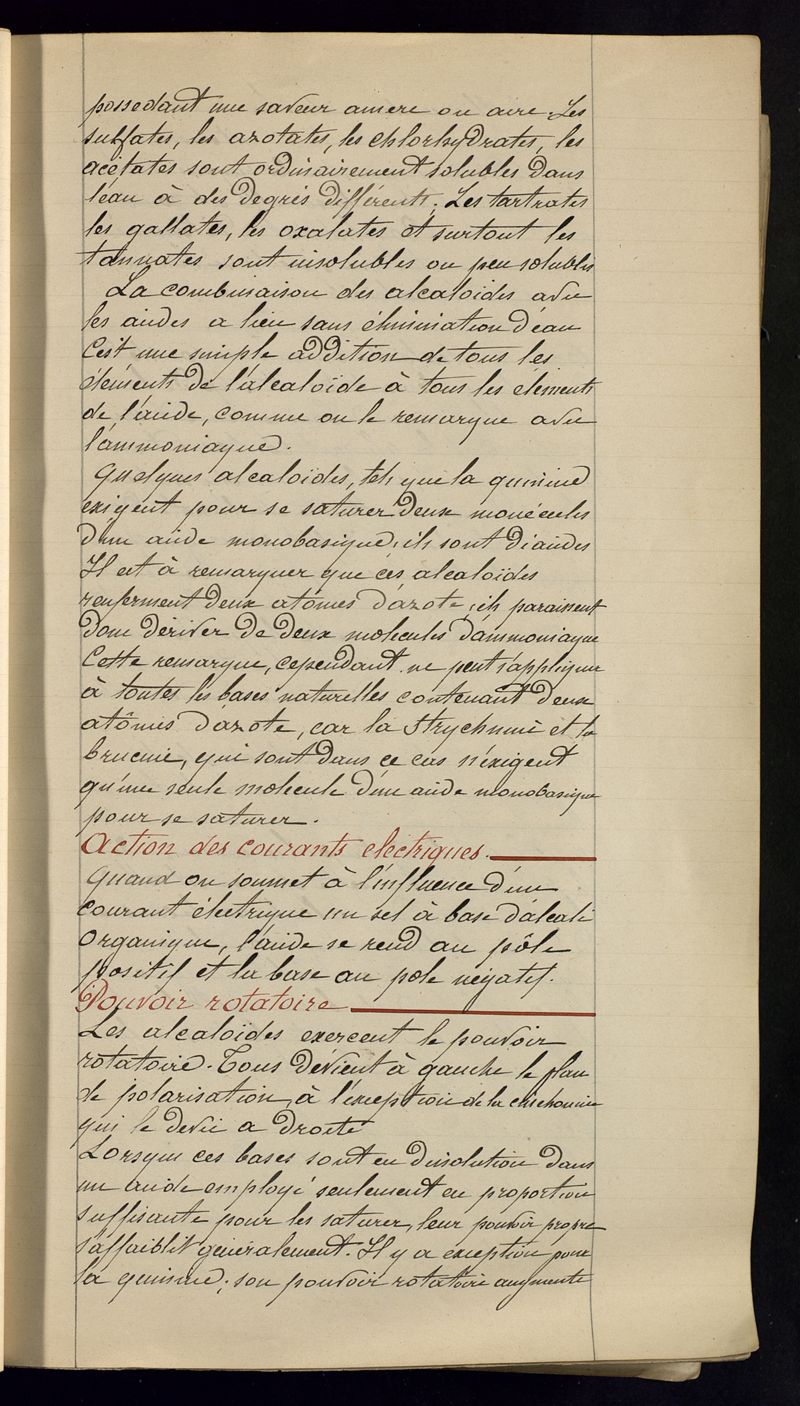 possedant une saveur amere ou acre. Les
sulfates, les azotates, les chlorhydrates, les
acétates sont ordinairement solubles dans
l'eau à des degrés différents. Les tartrates
les gallates, les oxalates et surtout les
tannates sont insolubles ou peu solubles
La combinaison des alcaloïdes avec
les acides a lieu sans élimination d'eau
C'est une simple addition de tous les
éléments de l'alcaloïde à tous les elements
de l'acide, comme on le remarque avec
l'ammoniaque.
Quelques alcaloïdes, tels que la quinine
exigent pour se saturer deux molécules
d'un acide monobasique; ils sont diacides
Il est à remarquer que ces alcaloïdes
renferment deux atômes d'azote; ils paraissent
donc dériver de deux molecules d'ammoniaque
Cette remarque, cependant ne peut s'appliquer
à toutes les bases naturelles contenant deux
atômes d'azote, car la Strychnine et la
brucine, qui sont dans ce cas n'exigent
qu'une seule molecule d'un acide monobasique
pour se saturer.
Action des courants electriques.
Quand on soumet à l'influence d'un
courant électrique un sel à base d'alcali
organique, l'acide se rend au pôle
positif et la base au pole négatif.
Pouvoir rotatoire
Les alcaloïdes exercent le pouvoir
rotatoire. Tous dévient à gauche le plan
de polarisation, à l'exception de la cinchonine
qui le devie a droite
Lorsque ces bases sont en dissolution dans
un acide employé seulement en proportion
suffisante pour les saturer, leur pouvoir propre
s'affaiblit généralement. Il y a exception pour
la quinine; son pouvoir rotatoire augmente